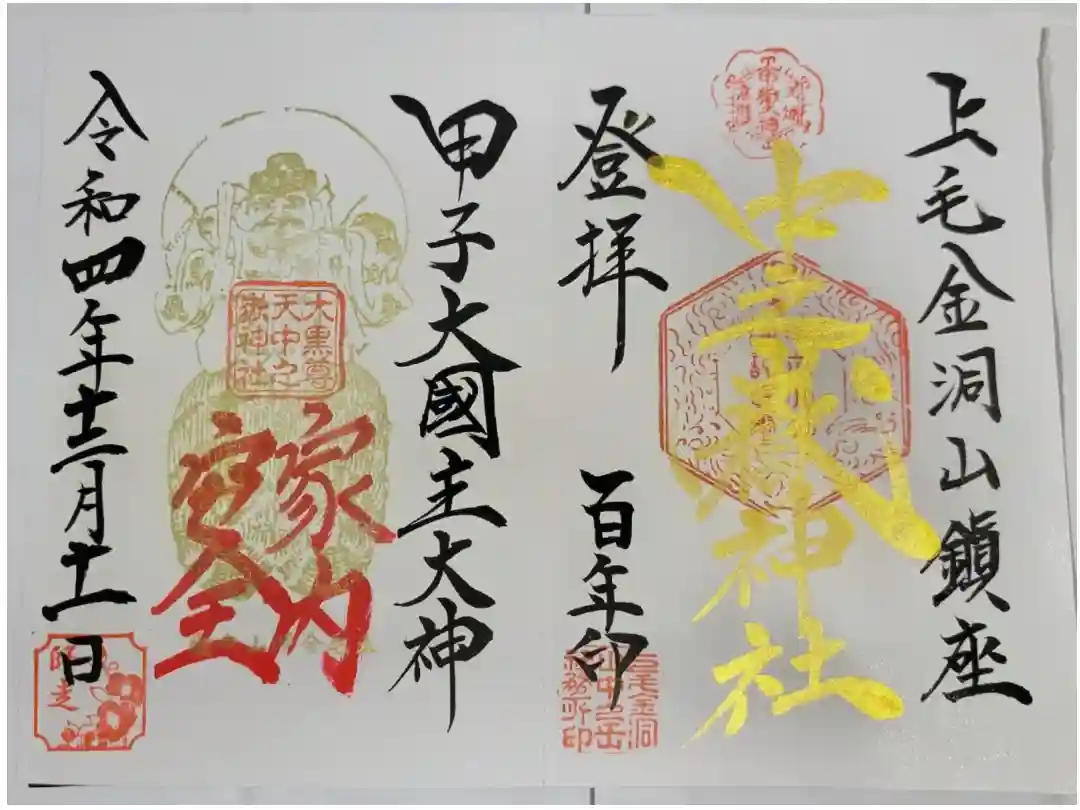 上毛金洞山鎮座
中之嶽神社
登拝
百年印
上毛金洞
山中之岳
社務所印
甲子大國主大神
大黒尊
天中之
嶽神社
家内
安全
令和四年十二月十一日
師走